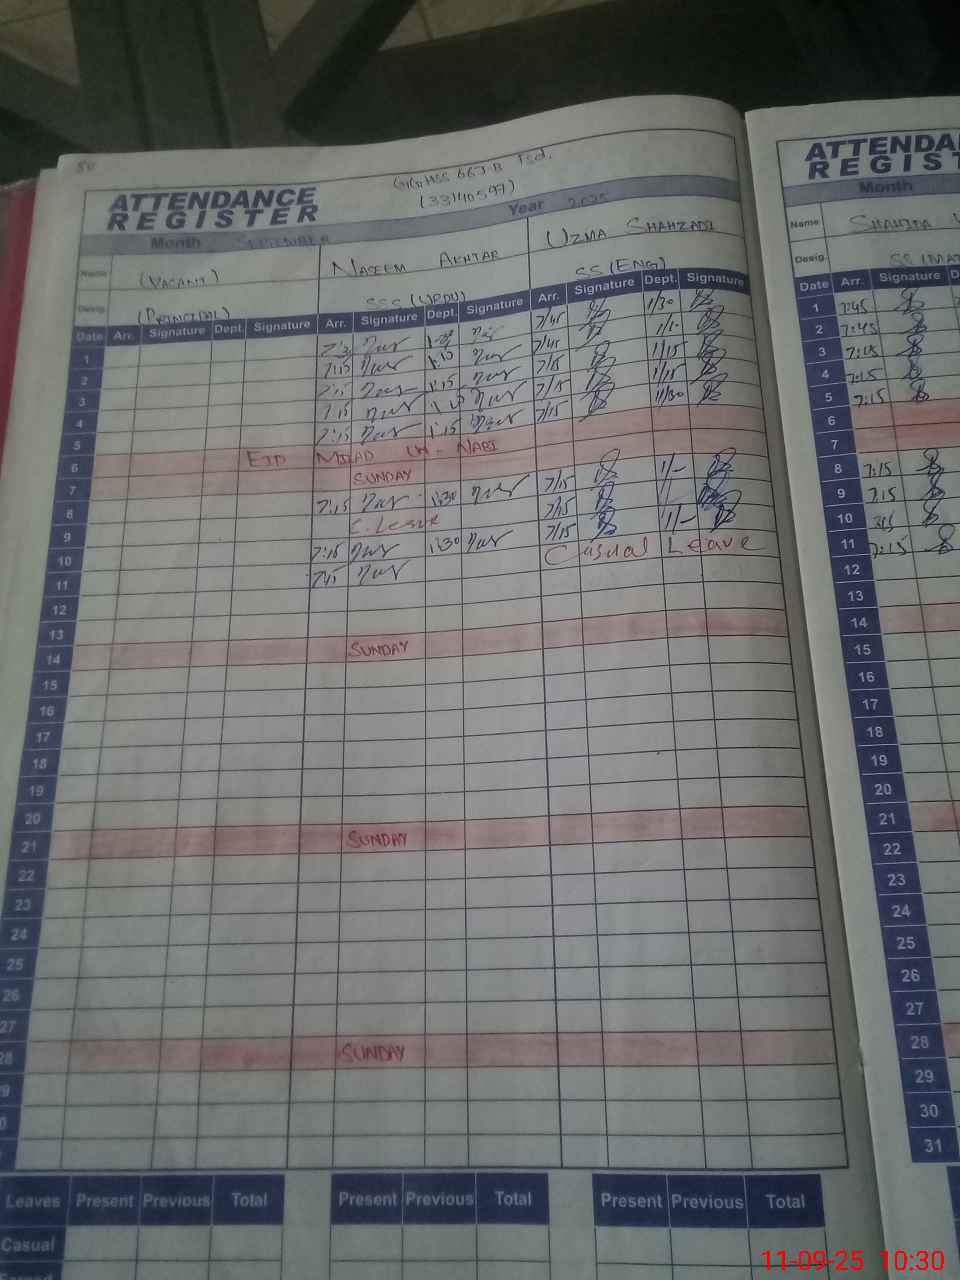 50
GGHSS 66 J.B Fsd.
(33140597)
ATTENDANCE
REGISTER
Month SEPTEMBER Year 2025
Name (VACANT) NASEEM AKHTAR UZMA SHAHZADI
Desig. (PRINCIPAL) SSS (URDU) SS (ENG)
Date Arr. Signature Dept. Signature Arr. Signature Dept. Signature Arr. Signature Dept. Signature
1 7/45 1/30
2 7:15 1:15 7/45 1/1
3 7:15 1:15 7/15 1/15
4 7:15 7/15 1/15
5 7:15 1:15 7/15 1/30
6 EID MILAD UN-NABI
7 SUNDAY
8 7:15 1:30 7/15 1/-
9 C. Leave 7/15
10 7:15 1:30 7/15 1/-
11 7:15 Casual Leave
12
13
14 SUNDAY
15
16
17
18
19
20
21 SUNDAY
22
23
24
25
26
27
28 SUNDAY
29
Leaves Present Previous Total Present Previous Total Present Previous Total
Casual
ATTENDA
REGIST
Month
Name SHAHIDA
Desig. SS (MAT
Date Arr. Signature
1 7:45
2 7:45
3 7:15
4 7:15
5 7:15
6
7
8 7:15
9 7:15
10
11 7:15
12
13
14
15
16
17
18
19
20
21
22
23
24
25
26
27
28
29
30
31
11-09-25 10:30